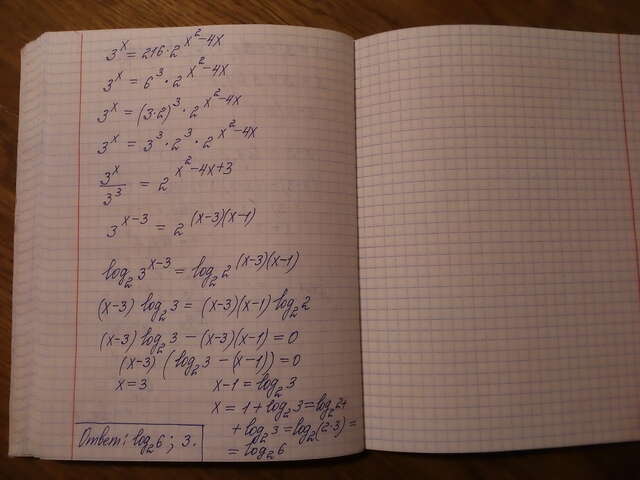 3^x = 216·2^(x²-4x)
3^x = 6³·2^(x²-4x)
3^x = (3·2)³·2^(x²-4x)
3^x = 3³·2³·2^(x²-4x)
3^x/3³ = 2^(x²-4x+3)
3^(x-3) = 2^((x-3)(x-1))
log₂3^(x-3) = log₂2^((x-3)(x-1))
(x-3) log₂3 = (x-3)(x-1) log₂2
(x-3) log₂3 - (x-3)(x-1) = 0
(x-3) (log₂3 - (x-1)) = 0
x = 3 x-1 = log₂3
x = 1 + log₂3 = log₂2+
+ log₂3 = log₂(2·3) =
= log₂6
Ответ: log₂6; 3.